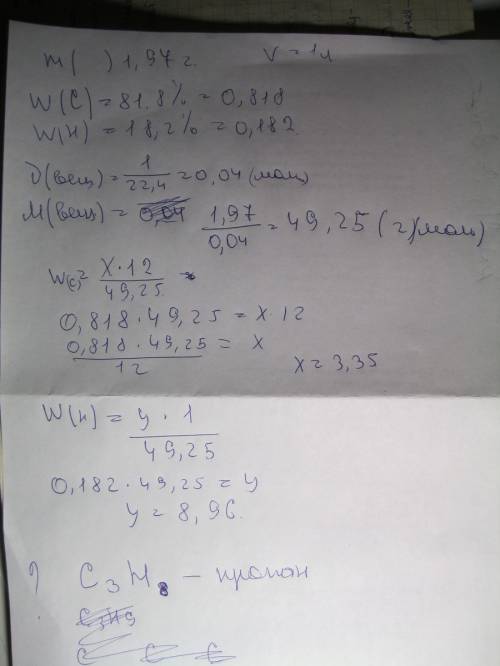 m( ) 1,97 г. V = 1л
W(C) = 81.8% = 0,818
W(H) = 18,2% = 0,182
ν(вещ) = 1/22,4 = 0,04 (мол)
M(вещ) = 0,04 1,97/0,04 = 49,25 (г)(мол)
W(c) = X·12/49,25
0,818·49,25 = X·12
0,818·49,25/12 = X X = 3,35
W(н) = y·1/49,25
0,182·49,25 = y
y = 8,96.
? C₃H₈ – пропан
C₃H₉
C C C